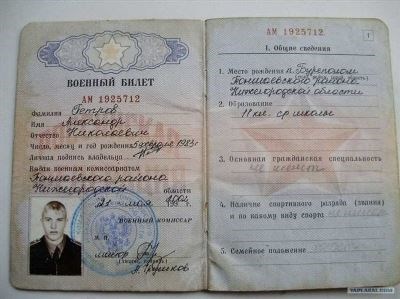 ВОЕННЫЙ БИЛЕТ
АМ 1925712
Фамилия Петров
Имя Александр
Отчество Николаевич
Число, месяц и год рождения 5 февраля 1983 г.
Личная подпись владельца
Выдан военным комиссариатом
Тоншаевского района
Нижегородской области
ВОЕННЫЙ КОМИССАР
М. П.
майор
АМ 1925712
1
I. Общие сведения
1. Место рождения п. Буреполом
Тоншаевского района
Нижегородской области
2. Образование
11 кл. ср школы
3. Основная гражданская специальность
не имеет
4. Наличие спортивного разряда (звания)
и по какому виду спорта не имеет
5. Семейное положение
YAPLAKAL.COM